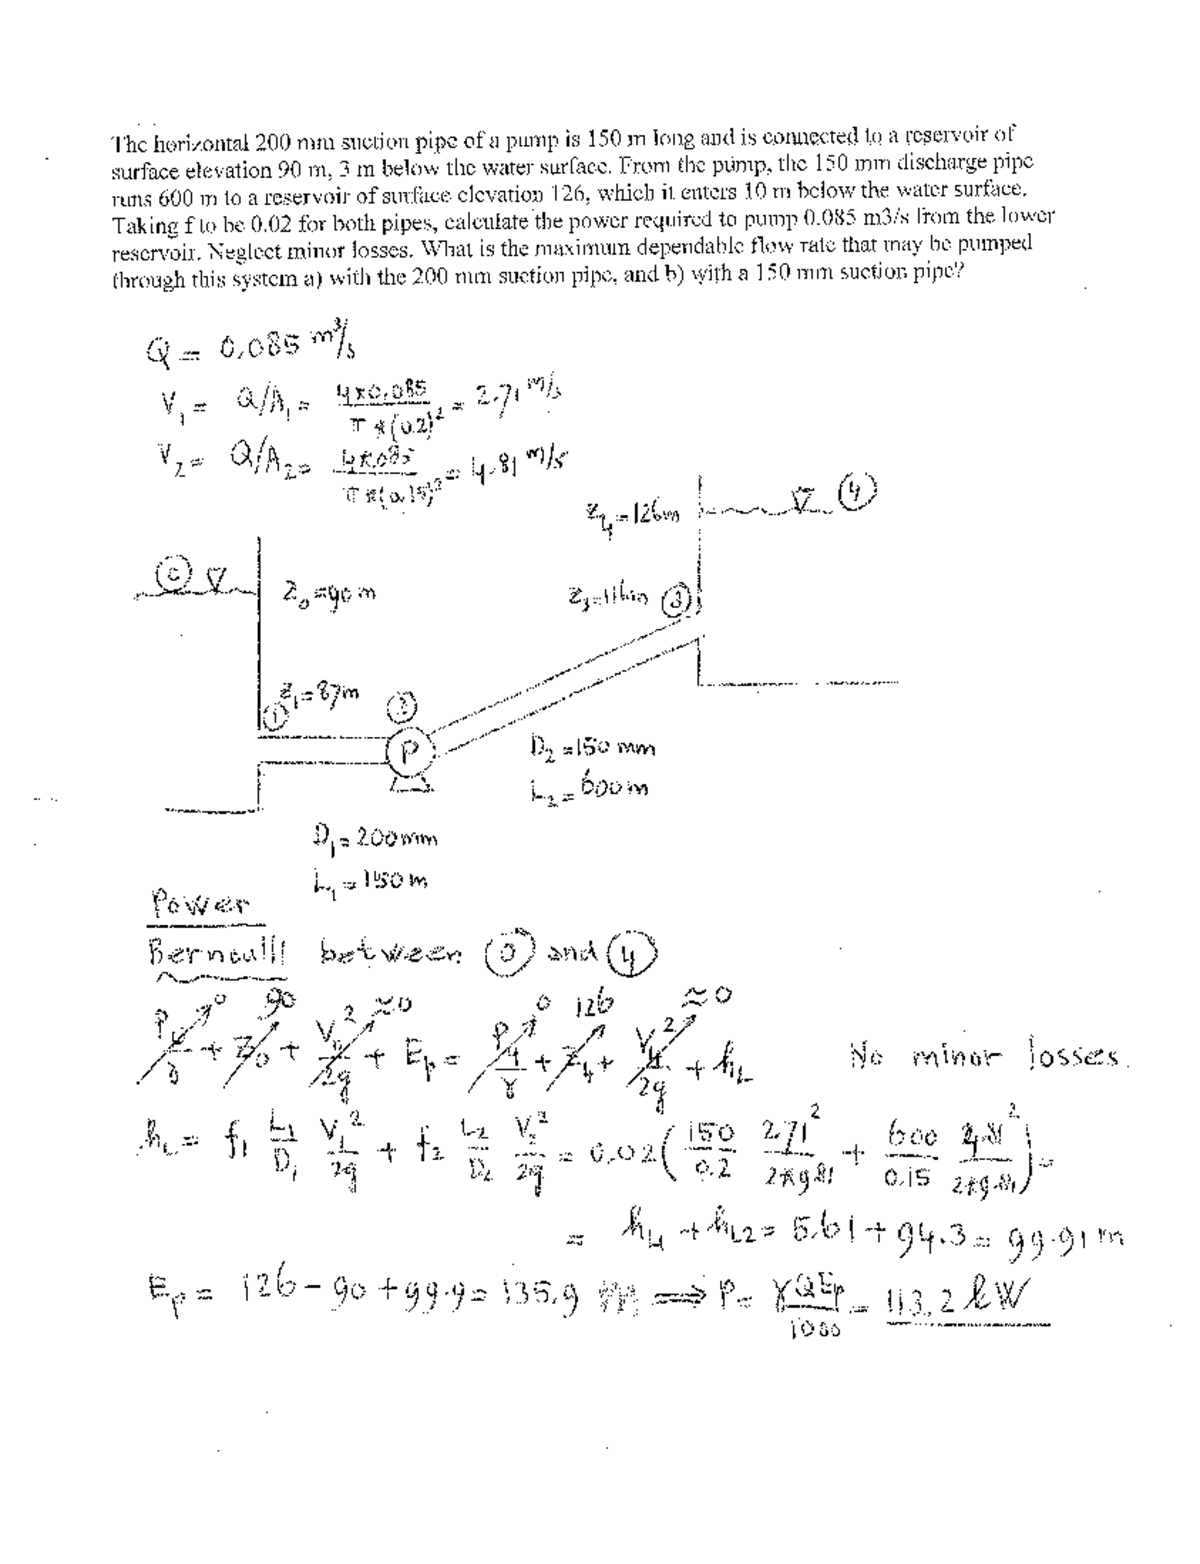 The horizontal 200 mm suction pipe of a pump is 150 m long and is connected to a reservoir of
surface elevation 90 m, 3 m below the water surface. From the pump, the 150 mm discharge pipe
runs 600 m to a reservoir of surface elevation 126, which it enters 10 m below the water surface.
Taking f to be 0.02 for both pipes, calculate the power required to pump 0.085 m3/s from the lower
reservoir. Neglect minor losses. What is the maximum dependable flow rate that may be pumped
through this system a) with the 200 mm suction pipe, and b) with a 150 mm suction pipe?
Q = 0,085 m³/s
V₁ = Q/A₁ = 4*0.085 / π*(0.2)² = 2.71 m/s
V₂ = Q/A₂ = 4*.085 / π*(0.15)² = 4.81 m/s
Z₄ = 126m ▽ (4)
(0) ▽ Z₀ = 90 m Z₃ = 116m (3)
Z₁ = 87m (1) (2)
P D₂ = 150 mm
L₂ = 600m
D₁ = 200mm
L₁ = 150 m
Power
Bernoulli between (0) and (4)
P₀/γ ↗0 + Z₀ ↗90 + V₀²/2g ↗≈0 + Eₚ = P₄/γ ↗0 + Z₄ ↗126 + V₄²/2g ↗≈0 + h_L No minor losses.
h_L = f₁ L₁/D₁ V₁²/2g + f₂ L₂/D₂ V₂²/2g = 0.02 ( 150/0.2 2.71²/2*9.81 + 600/0.15 4.81²/2*9.81 ) =
= h_L1 + h_L2 = 5.61 + 94.3 = 99.91 m
Eₚ = 126 - 90 + 99.9 = 135.9 m ⟹ P = γQEₚ/1000 = 113.2 kW